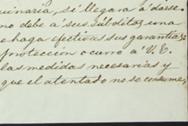 uinaria, se llegara á darse
no debe á sus súbditos, una
e haga efectivas sus garantías,
protección ocurro á V.E.
las medidas necesarias y
que el atentado no se consume,